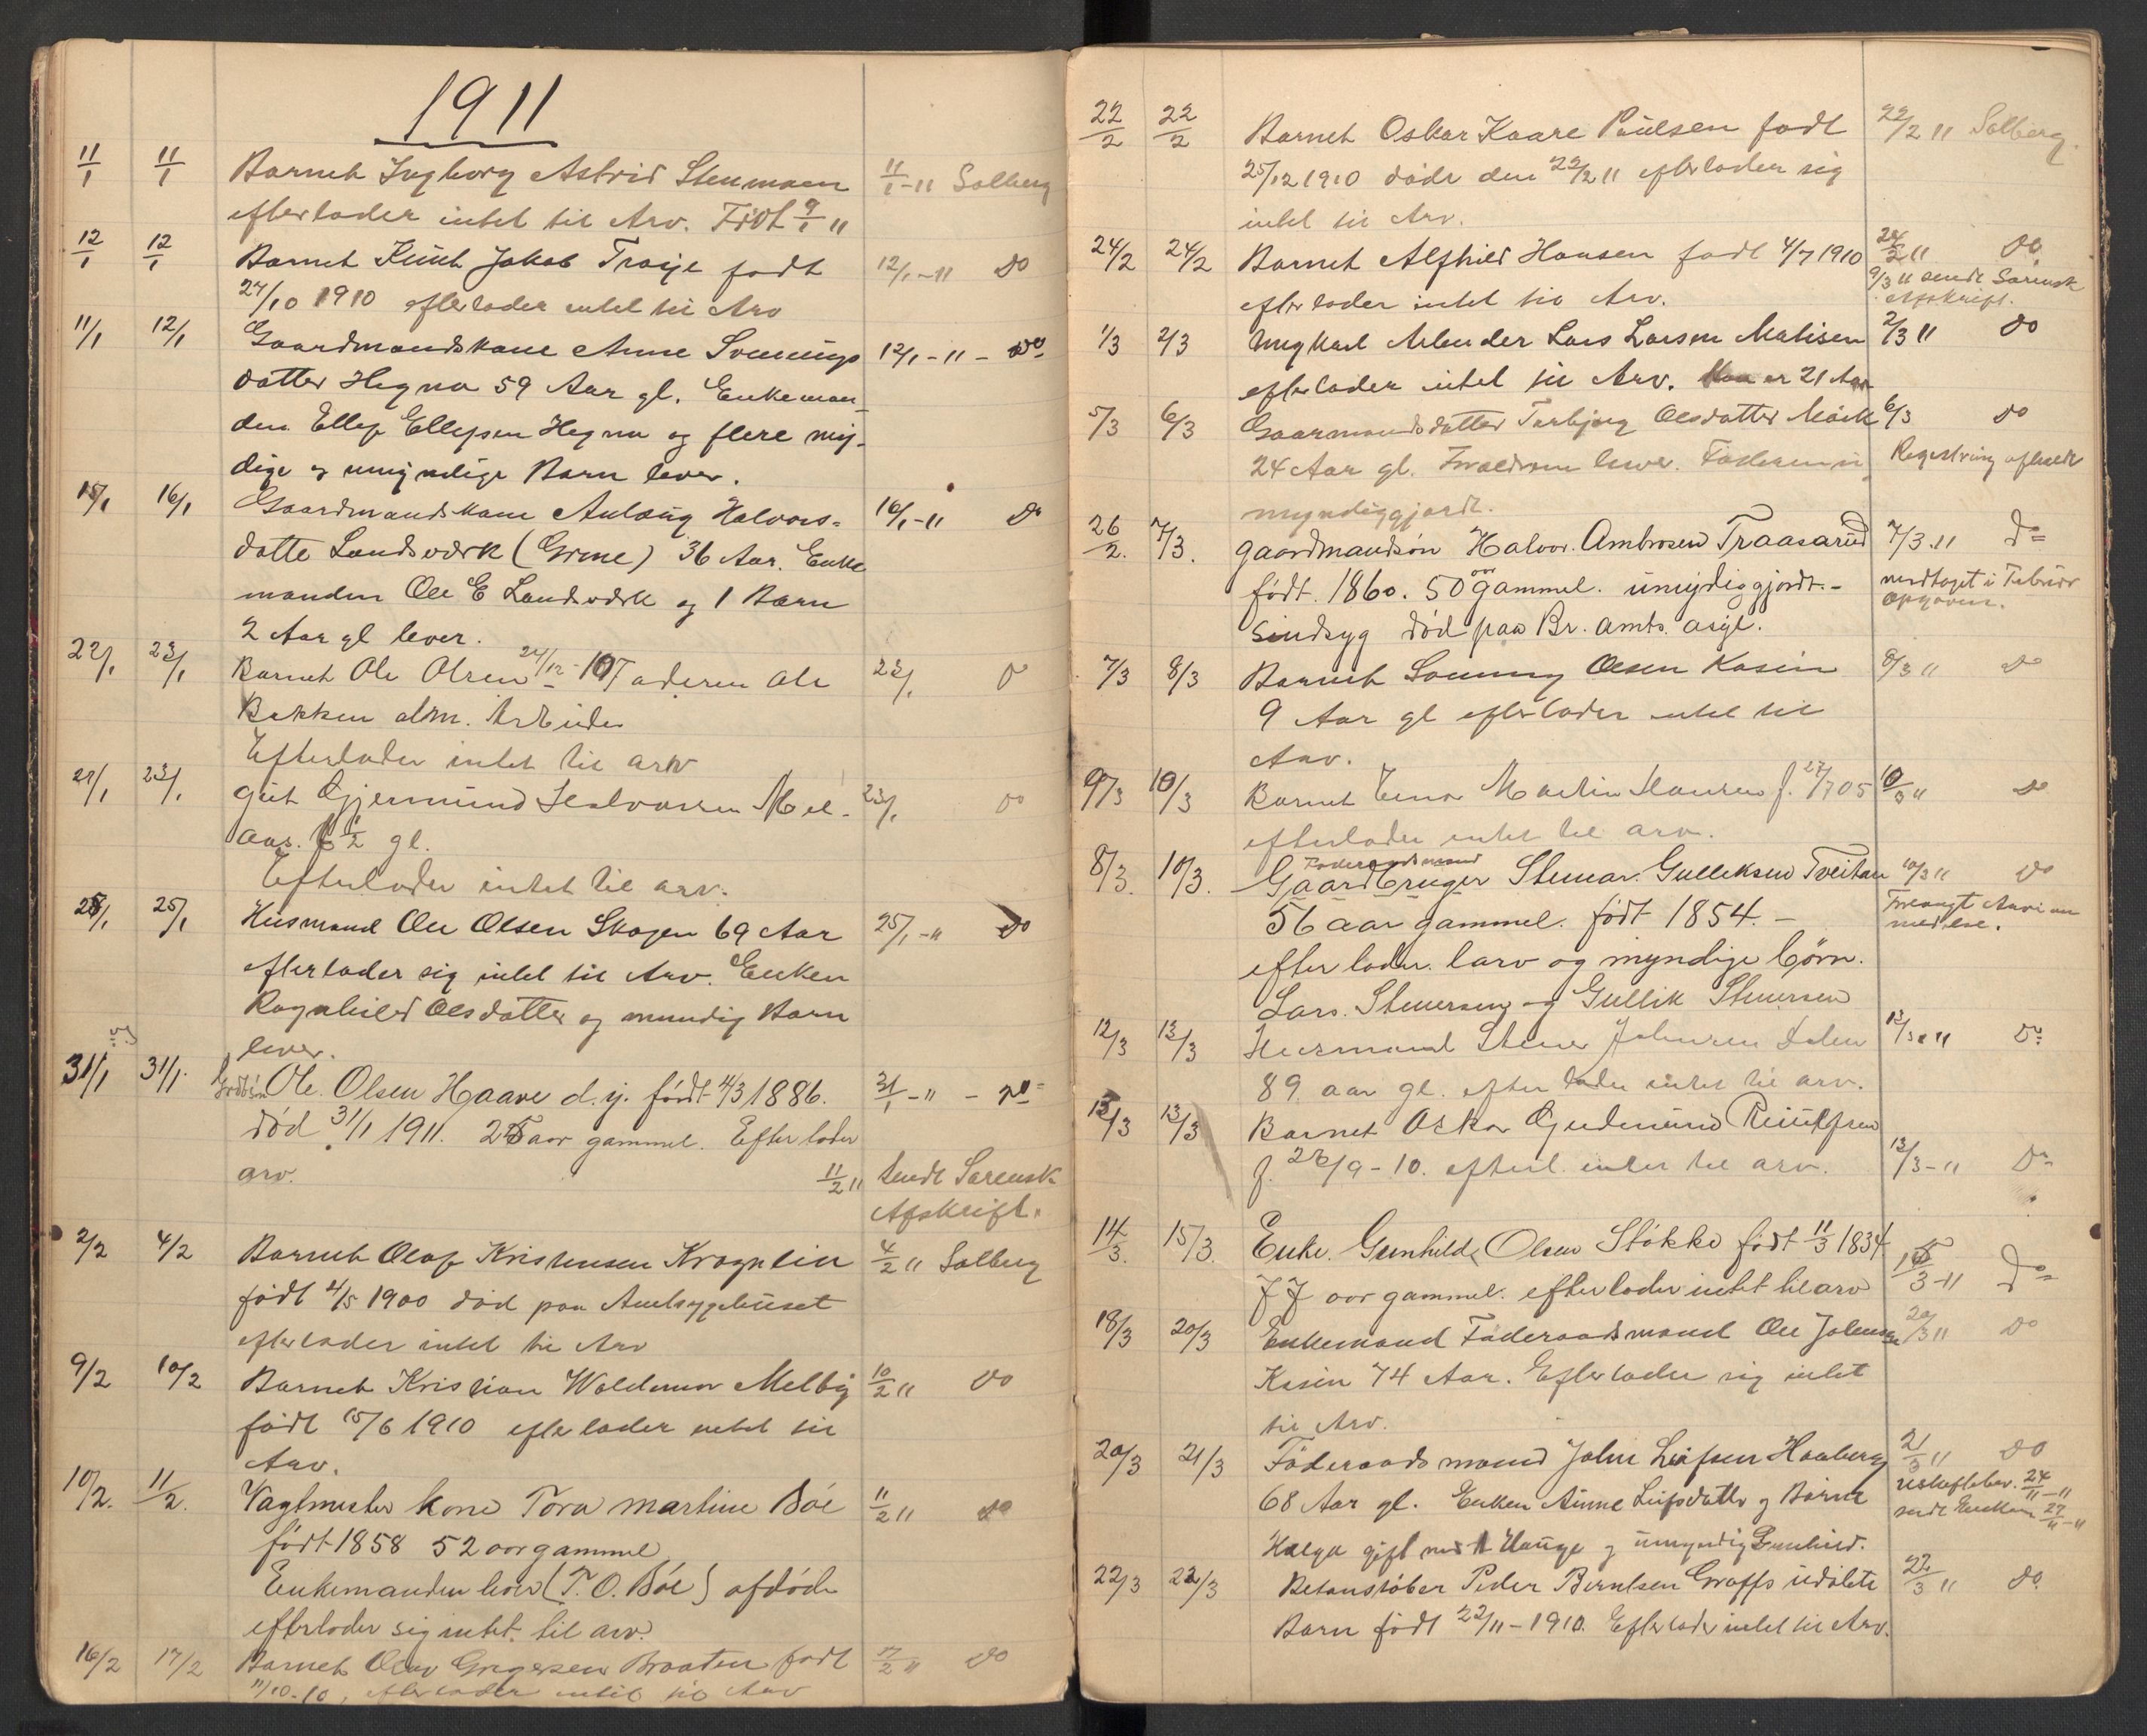 1911
11/1 11/1 Barnet Ingborg Astrid Stenmoen 11/1-11 Solberg
efterlader intet til Arv. Född 9/1 11
12/1 12/1 Barnet Knut Jakob Traije født 12/1-11 Do
27/10 1910 efterlader intet til Arv
11/1 12/1 Gaardmandskone Anne Svennings 12/1-11 - Do
datter Hegna 59 Aar gl. Enkeman-
den Ellef Ellefsen Hegna og flere myn-
dige og umyndige Børn lever.
15/1 16/1 Gaardmandskone Aslaug Halvors- 16/1-11 Do
datte Landsværk (Grene) 36 Aar. Enke
manden Ole E Landsværk og 1 Barn
2 Aar gl lever.
22/1 23/1 Barnet Ole Olsen 24/12-10 Faderen Ole 23/1 D
Bakken alm. Arbeider
Efterlader intet til arv
21/1 23/1 gut Gjermund Halvorsen Mel- 23/1 Do
aas. 6 1/2 gl.
Efterlader intet til arv.
25/1 25/1 Husmand Ole Olsen Skogen 69 Aar 25/1-11 Do
efterlader sig intet til Arv. Enken
Ragnhild Olsdatter og myndig Barn
lever.
31/1 31/1. Ole Olsen Haave d.y. født 4/3 1886. 31/1-11 - Do
død 31/1 1911. 25 aar gammel. Efterlader
arv. 11/2 11 sendt Sorensk.
Afskrift.
2/2 4/2 Barnet Olaf Kristensen Krogstein 4/2 11 Solberg
født 4/5 1900 død paa Amtsygehuset
efterlader intet til Arv
9/2 10/2 Barnet Kristian Waldemar Melby 10/2 11 Do
født 15/6 1910 efterlader intet til
Arv.
10/2. 11/2. Vagtmester kone Tora Martine Bøe 11/2 11 Do
født 1858 52 aar gammel
Enkemanden lever (T. O. Bøe) afdøde
efterlader sig intet til arv.
16/2 17/2 Barnet Olav Gregersen Braaten født 17/2 11 Do
11/10-10, efterlader intet til Arv
22/2 22/2 Barnet Oskar Kaare Paulsen født 22/2 11 Solberg.
25/12 1910 døde den 22/2 11 efterlader sig
intet til Arv.
24/2 24/2 Barnet Alfhild Hansen født 4/7 1910 24/2 11 Do
efterlader intet til Arv. 9/3 11 sendt Sorensk Afskrift.
1/3 2/3 Ungkarl Arbeider Lars Larsen Matisen 2/3 11 Do
efterlader intet til Arv. Han er 21 Aar
5/3 6/3 Gaarmandsdatter Torbjørg Olsdatter Mørk 6/3 Do
24 Aar gl. Forældrene lever. Registrering afholdt
myndiggjordt.
26/2. 7/3. gaardmandsøn Halvor Ambrosen Traasarud 7/3.11 Do
født. 1860. 50 aar gammel. umyndiggjordt.- medtaget i Februar
Sindsyg død paa Br. amts. asyl. opgaven.
7/3 8/3 Barnet Sonning Olsen Kasin 8/3 11 Do
9 Aar gl efterlader intet til
Arv.
9/3 10/3 Barnet Einar Martin Hansen f. 27/7 05 10/3 11 Do
efterlader intet til arv.
Føderaadsmand
8/3. 10/3. Gaardbruger Stenar Gulleksen Tveitan 10/3 11 Do
56 aar gammel. født 1854.-
efterlader. arv og myndige børn.
Lars Stenersen og Gullik Stenersen
12/3 13/3 Husmand Stener Johnsen Dalen 13/3 11 Do
89 aar gl. efterlader intet til arv.
13/3 13/3 Barnet Oskar Gudmund Knutsen
f. 28/9-10. efterl. intet til arv. 13/3-11 Do
14/3. 15/3. Enke. Gunhild Olsen Stokke født 11/3 1834
77 aar gammel. efterlader intet til arv 15/3-11 Do
18/3 20/3 Enkemand Føderaadsmand Ole Johnsen 20/3 11 Do
Kasin 74 Aar. Efterlader sig intet
til Arv.
20/3 21/3 Føderaadsmand John Leifsen Haaberg 21/3 11 Do
68 Aar gl. Enken Anne Leifsdatter og Børne 24/11-11
Helga gift med A Hauge og umyndig Gunhild. sendt Enken 27/11-11
22/3 22/3 Betonstøber Peder Berntsen Graffs udøbte 22/3 11 Do
Barn født 22/11-1910. Efterlader intet til Arv.